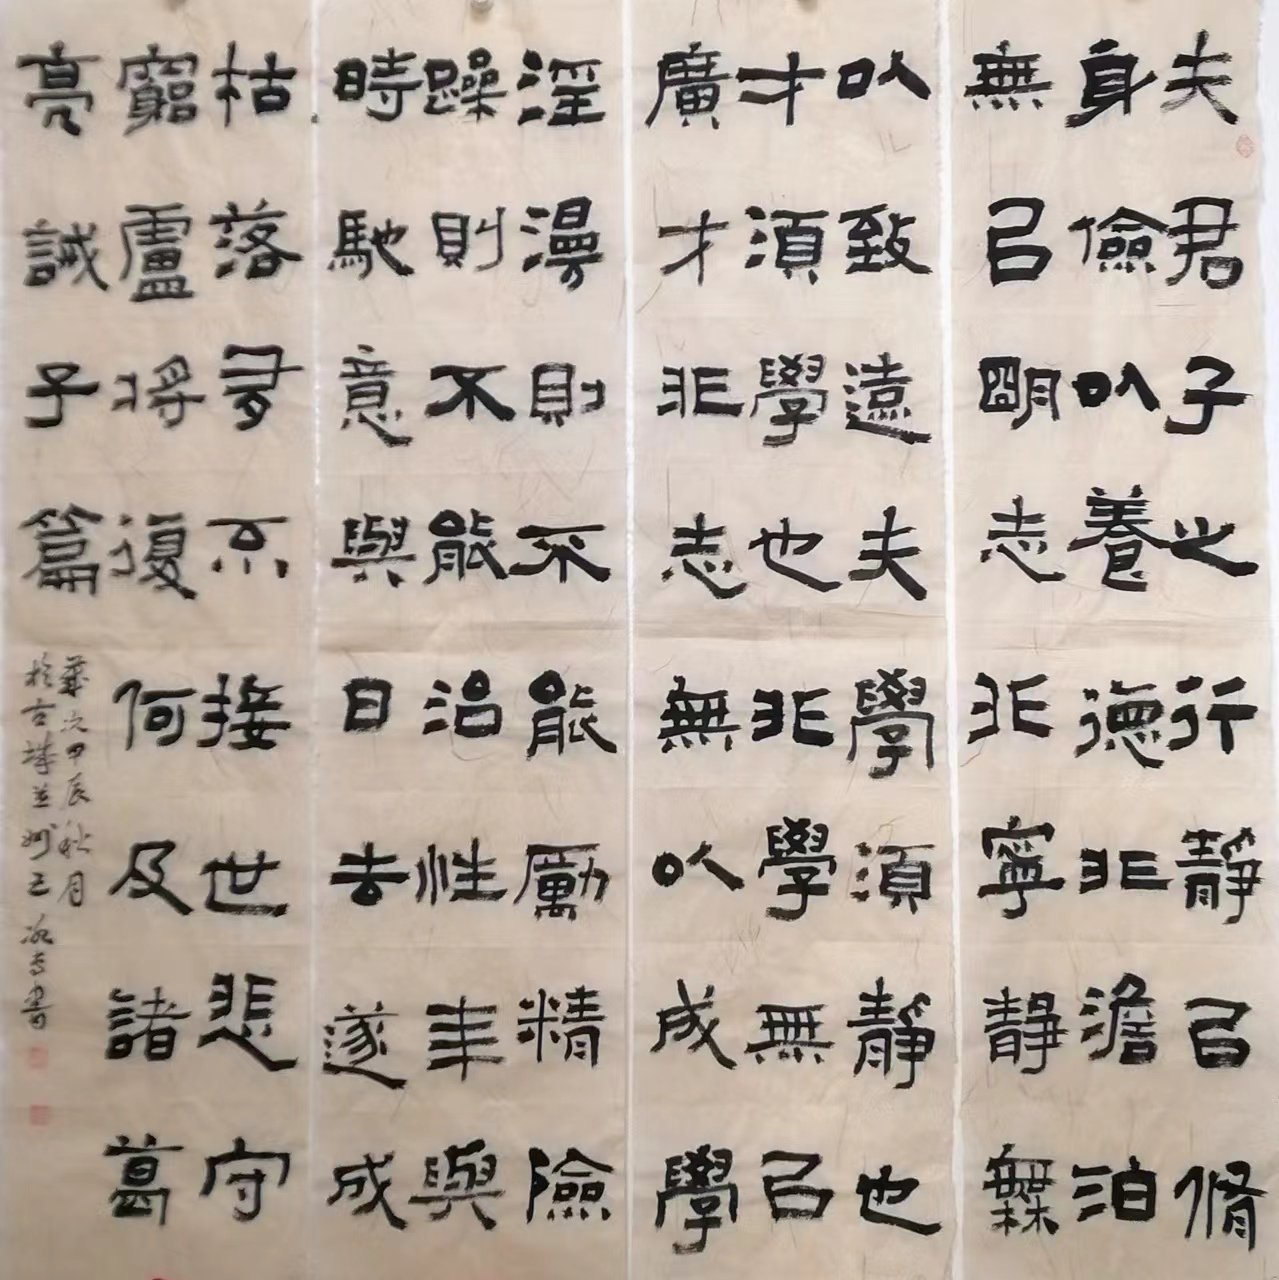 夫君子之行靜㠯脩
身儉以養德非澹泊
無㠯明志非寧靜無
以致遠夫學須靜也
才須學也非學無㠯
廣才非志無以成學
淫漫則不能勵精險
躁則不能治性年與
時馳意與日去遂成
枯落多不接世悲守
窮盧將復何及諸葛
亮誡子篇
歲次甲辰秋月
於古並州王書